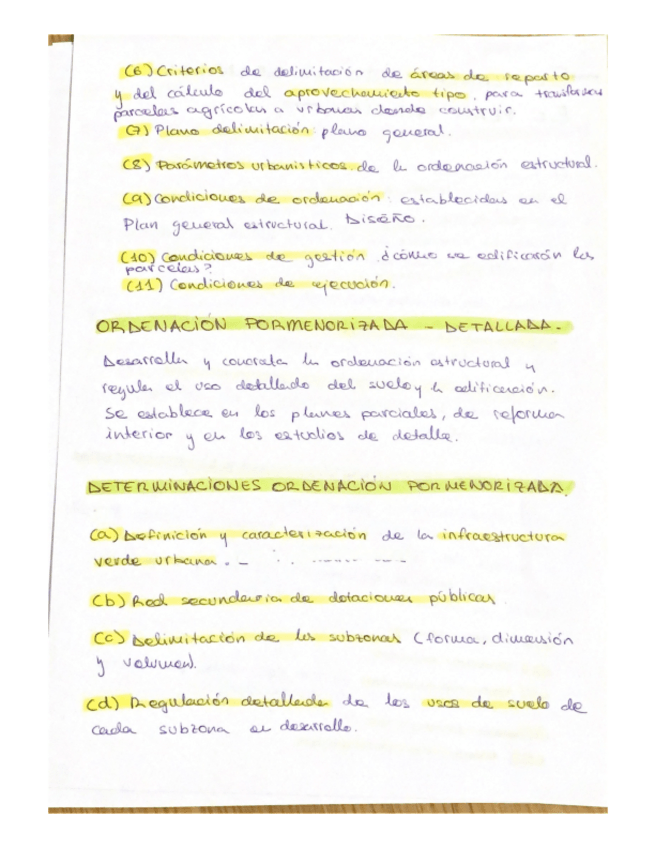 (6) Criterios de delimitación de áreas de reparto
y del cálculo del aprovechamiento tipo, para transformar
parcelas agrícolas a urbanas donde construir.
(7) Plano delimitación: plano general.
(8) Parámetros urbanísticos de la ordenación estructural.
(9) Condiciones de ordenación: establecidas en el
Plan general estructural. Diseño.
(10) Condiciones de gestión ¿cómo se edificarán las
parcelas?
(11) Condiciones de ejecución.
ORDENACIÓN PORMENORIZADA - DETALLADA.
Desarrolla y concreta la ordenación estructural y
regula el uso detallado del suelo y la edificación.
Se establece en los planes parciales, de reforma
interior y en los estudios de detalle.
DETERMINACIONES ORDENACIÓN PORMENORIZADA.
(a) Definición y caracterización de la infraestructura
verde urbana.
(b) Red secundaria de dotaciones públicas
(c) Delimitación de las subzonas (forma, dimensión
y volumen).
(d) Regulación detallada de los usos de suelo de
cada subzona en desarrollo.